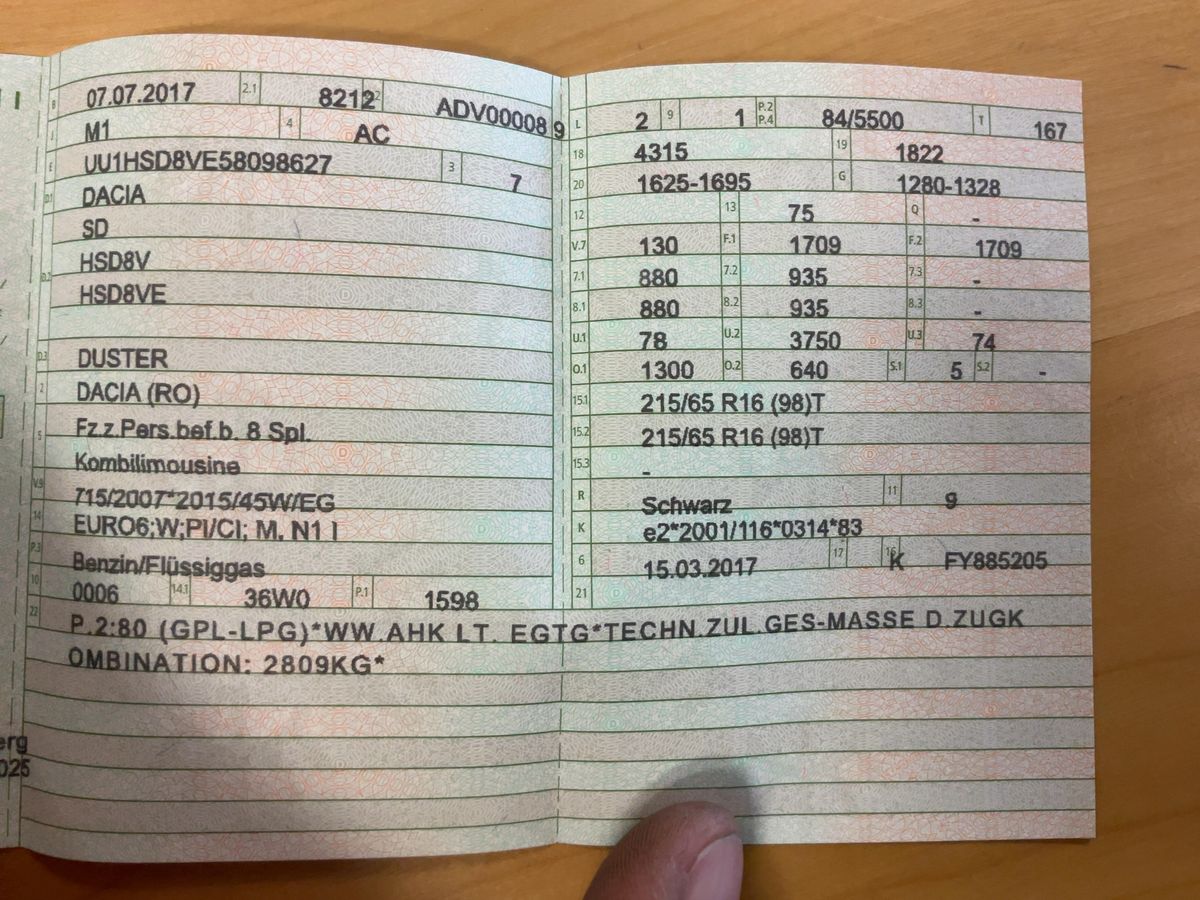 B 07.07.2017 2.1 8212 2.2 ADV00008 9
J M1 4 AC
E UU1HSD8VE58098627 3 7
D.1 DACIA
SD
D.2 HSD8V
HSD8VE
D.3 DUSTER
2 DACIA (RO)
5 Fz.z.Pers.bef.b. 8 Spl.
Kombilimousine
V.9 715/2007*2015/45W/EG
14 EURO6;W;PI/CI; M, N1 I
P.3 Benzin/Flüssiggas
10 0006 14.1 36W0 P.1 1598
L 2 9 1 P.2 P.4 84/5500 T 167
18 4315 19 1822
20 1625-1695 G 1280-1328
12 13 75 Q -
V.7 130 F.1 1709 F.2 1709
7.1 880 7.2 935 7.3 -
8.1 880 8.2 935 8.3 -
U.1 78 U.2 3750 U.3 74
O.1 1300 O.2 640 S.1 5 S.2 -
15.1 215/65 R16 (98)T
15.2 215/65 R16 (98)T
15.3 -
R Schwarz 11 9
K e2*2001/116*0314*83
6 15.03.2017 17 K 16 FY885205
21
22 P.2:80 (GPL-LPG)*WW.AHK LT. EGTG*TECHN.ZUL.GES-MASSE D.ZUGK
OMBINATION: 2809KG*
erg
025